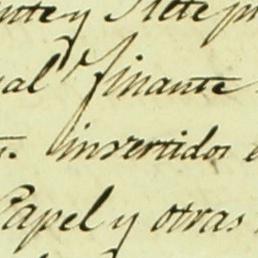 y Siete
al finante
invertidos
Papel y otras